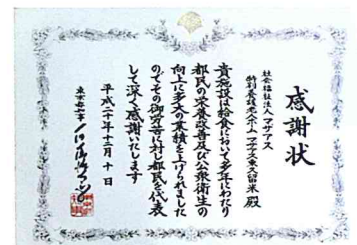 感謝状
社会福祉法人マザアス
特別養護老人ホーム マザアス東久留米 殿
貴施設は給食において多年にわたり
都民の栄養改善及び公衆衛生の
向上に多大の業績を上げられました
のでその御労苦に対し都民を代表
して深く感謝いたします
平成二十年十二月十日
東京都知事